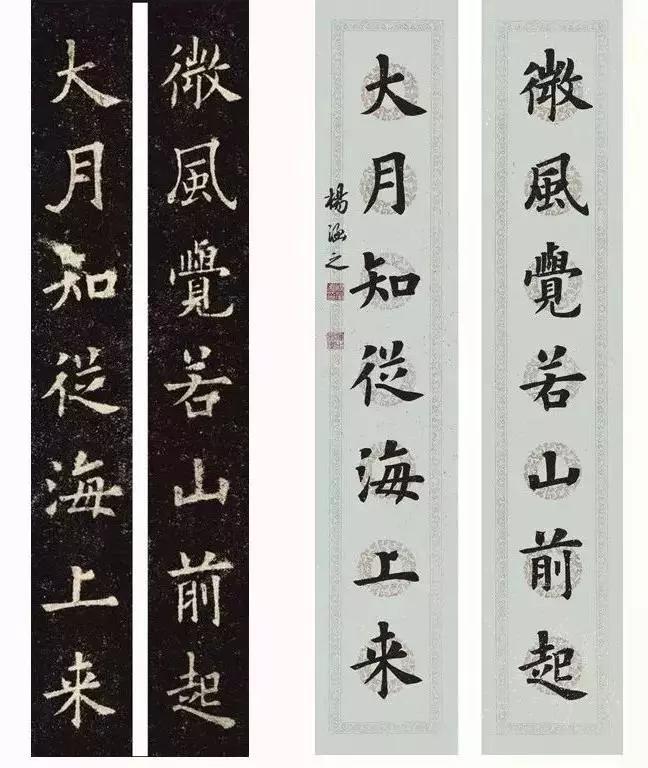 微風覺若山前起
大月知從海上来
楊涵之
微風覺若山前起
大月知從海上来